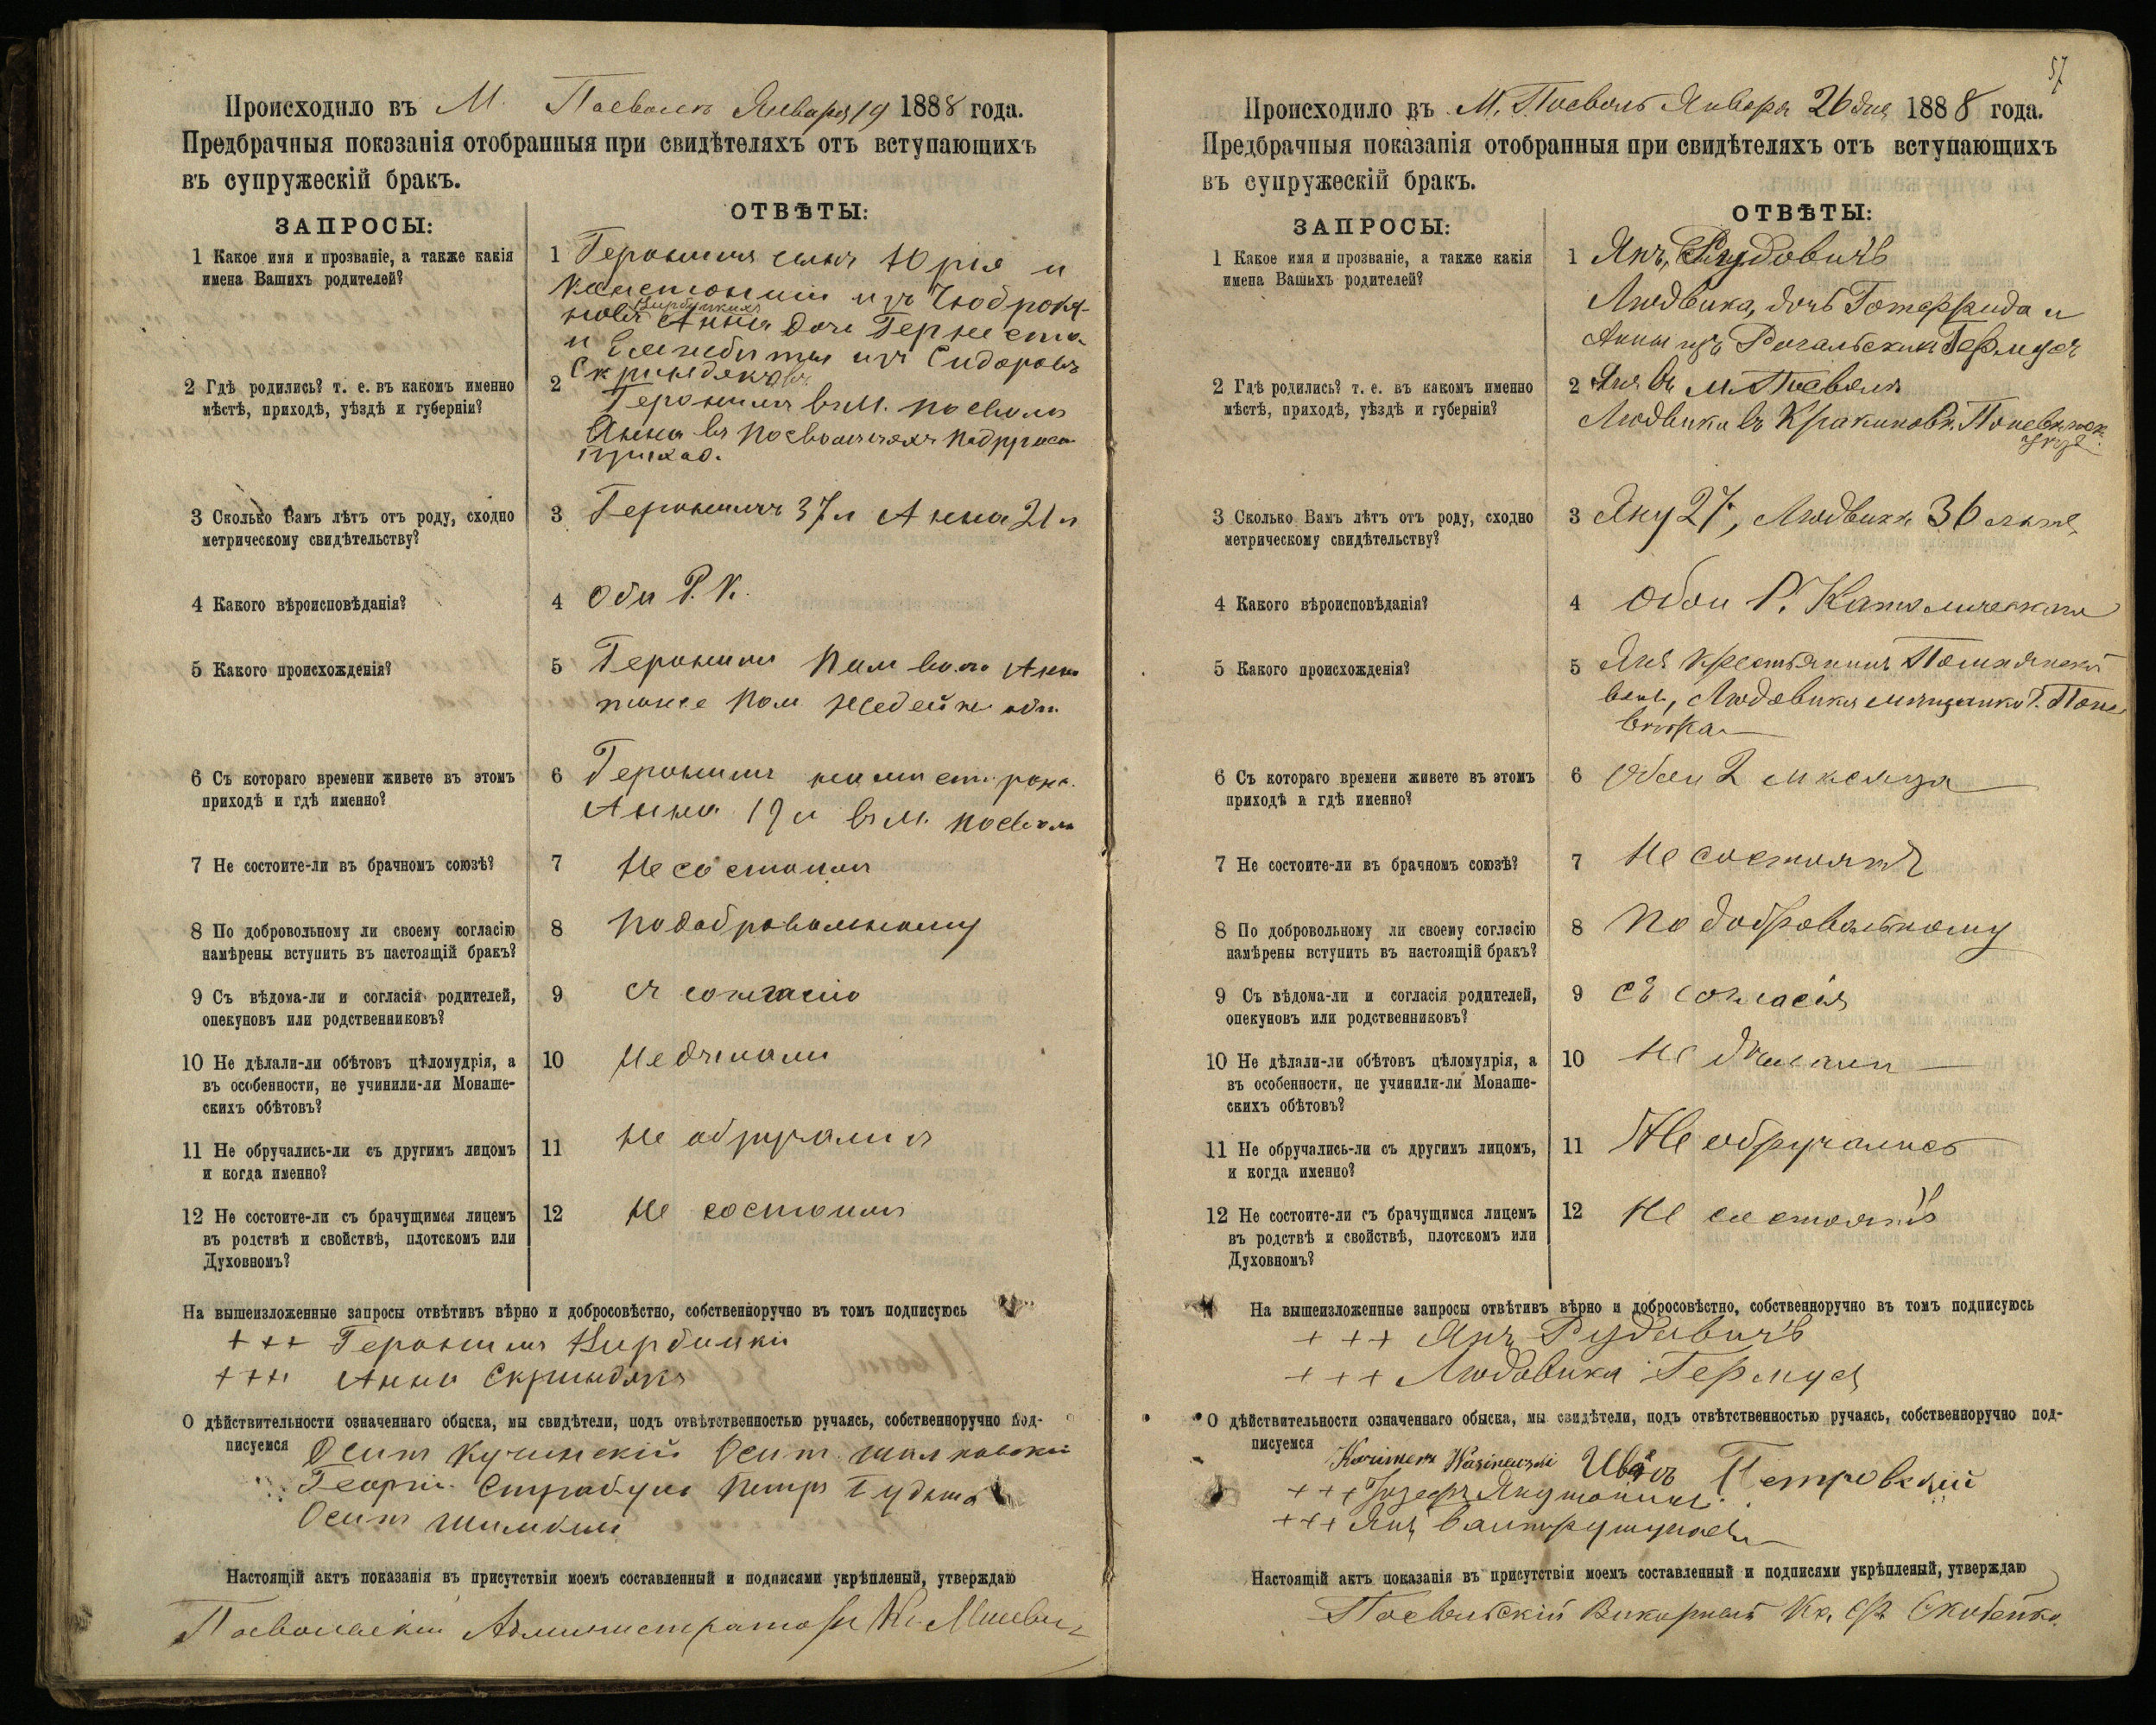 Происходило въ М. Посволь Января 19 1888 года.
Предбрачныя показанія отобранныя при свидѣтеляхъ отъ вступающихъ
въ супружескій бракъ.
ЗАПРОСЫ:
ОТВѢТЫ:
1 Какое имя и прозваніе, а также какія
имена Вашихъ родителей?
1 Геронимъ сынъ Юрія и
Констонціи изъ
Анна дочь
и Елжбеты изъ Сидоровъ
2 Гдѣ родились? т. е. въ какомъ именно
мѣстѣ, приходѣ, уѣздѣ и губерніи?
2 Геронимъ въ М. Посволь
Анна въ
приход.
3 Сколько Вамъ лѣтъ отъ роду, сходно
метрическому свидѣтельству?
3 Геронимъ 37 л Анна 21 л
4 Какого вѣроисповѣданія?
4 Оби Р. К.
5 Какого происхожденія?
5 Геронимъ Пом вол. Анна
тоже Пом
6 Съ котораго времени живете въ этомъ
приходѣ и гдѣ именно?
6 Геронимъ
Анна 19 л въ М. Посволь
7 Не состоите-ли въ брачномъ союзѣ?
7 Не состоимъ
8 По добровольному ли своему согласію
намѣрены вступить въ настоящій бракъ?
8 По добровольному
9 Съ вѣдома-ли и согласія родителей,
опекуновъ или родственниковъ?
9 съ согласію
10 Не дѣлали-ли обѣтовъ цѣломудрія, а
въ особенности, не учинили-ли Монаше-
скихъ обѣтовъ?
10 Не дѣлали
11 Не обручались-ли съ другимъ лицомъ
и когда именно?
11 Не обручались
12 Не состоите-ли съ брачущимся лицемъ
въ родствѣ и свойствѣ, плотскомъ или
Духовномъ?
12 Не состоимъ
На вышеизложенные запросы отвѣтивъ вѣрно и добросовѣстно, собственноручно въ томъ подписуюсь
+++ Геронимъ Кирбицкій
+++ Анна Скриндякъ
О дѣйствительности означеннаго обыска, мы свидѣтели, подъ отвѣтственностью ручаясь, собственноручно под-
писуемся Осипъ Кучинскій Осипъ
Георгій Петръ
Осипъ
Настоящій актъ показанія въ присутствіи моемъ составленный и подписями укрѣпленый, утверждаю
Посвольскій Администраторъ Кс.
57
Происходило въ М. Посволь Января 26 дня 1888 года.
Предбрачныя показанія отобранныя при свидѣтеляхъ отъ вступающихъ
въ супружескій бракъ.
ЗАПРОСЫ:
ОТВѢТЫ:
1 Какое имя и прозваніе, а также какія
имена Вашихъ родителей?
1 Янъ, Рудовичъ
Людвика, дочь Готерфида и
Анны изъ Рогальскихъ Гермусъ
2 Гдѣ родились? т. е. въ какомъ именно
мѣстѣ, приходѣ, уѣздѣ и губерніи?
2 Янъ въ м. Посволь
Людвика въ Кракиновѣ. Поневѣжск.
уѣзд.
3 Сколько Вамъ лѣтъ отъ роду, сходно
метрическому свидѣтельству?
3 Яну 27, Людвикѣ 36 лѣтъ
4 Какого вѣроисповѣданія?
4 Обои Р. Католическаго
5 Какого происхожденія?
5 Янъ крестьянинъ
вол., Людовика мѣщанка Г. Поне
вѣжа
6 Съ котораго времени живете въ этомъ
приходѣ и гдѣ именно?
6 Обои 2 мѣсяца
7 Не состоите-ли въ брачномъ союзѣ?
7 Не состоятъ
8 По добровольному ли своему согласію
намѣрены вступить въ настоящій бракъ?
8 По добровольному
9 Съ вѣдома-ли и согласія родителей,
опекуновъ или родственниковъ?
9 съ согласія
10 Не дѣлали-ли обѣтовъ цѣломудрія, а
въ особенности, не учинили-ли Монаше-
скихъ обѣтовъ?
10 Не дѣлали
11 Не обручались-ли съ другимъ лицомъ,
и когда именно?
11 Не обручались
12 Не состоите-ли съ брачущимся лицемъ
въ родствѣ и свойствѣ, плотскомъ или
Духовномъ?
12 Не состоятъ
На вышеизложенные запросы отвѣтивъ вѣрно и добросовѣстно, собственноручно въ томъ подписуюсь
+++ Янъ Рудовичъ
+++ Людовика Гермусъ
О дѣйствительности означеннаго обыска, мы свидѣтели, подъ отвѣтственностью ручаясь, собственноручно под-
писуемся Иванъ Петровскій
+++ Іозефъ
+++ Янъ
Настоящій актъ показанія въ присутствіи моемъ составленный и подписями укрѣпленый, утверждаю
Посвольскій Викарный Кс.